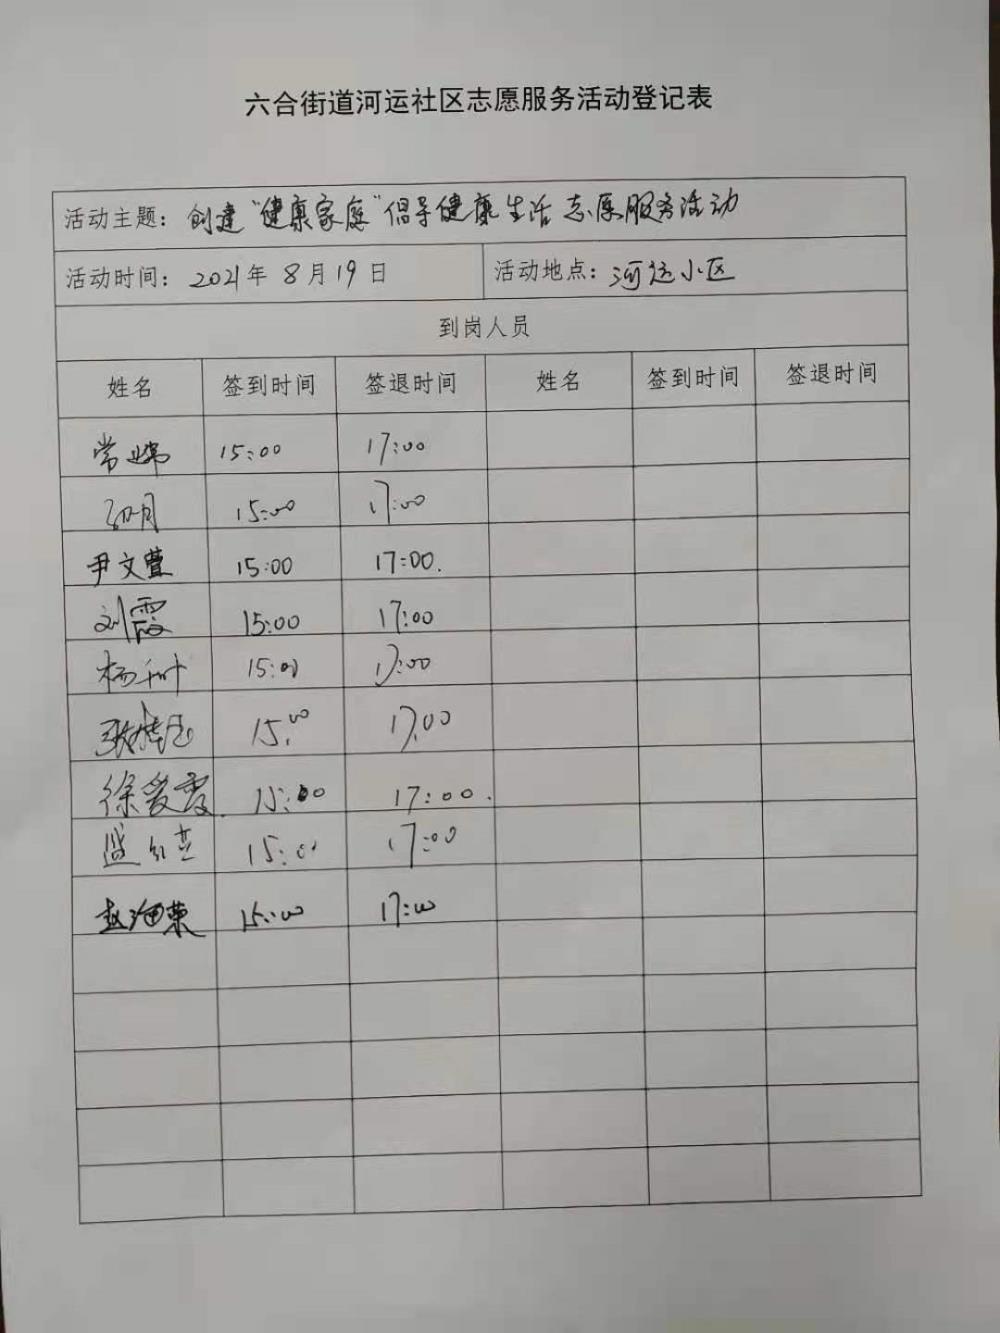 六合街道河运社区志愿服务活动登记表
活动主题：创建"健康家庭"倡导健康生活志愿服务活动
活动时间：2021年8月19日 活动地点：河运小区
到岗人员
姓名 签到时间 签退时间 姓名 签到时间 签退时间
15:00 17:00
15:00 17:00
尹文萱 15:00 17:00.
刘霞 15:00 17:00
15:00 17:00
15:00 17:00
徐爱霞. 15:00 17:00.
15:00 17:00
赵海荣 15:00 17:00